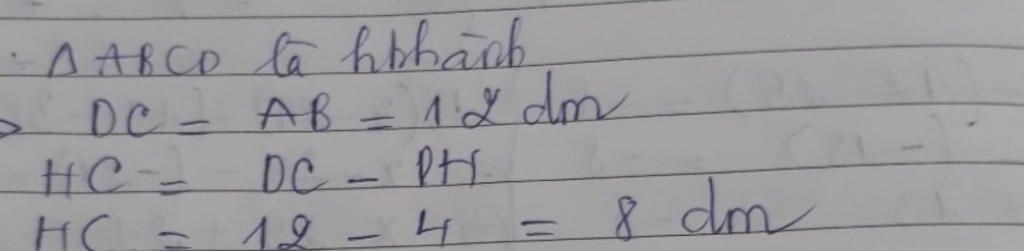 Δ ABCD là hbhành
> DC = AB = 12 dm
HC = DC - DH
HC = 12 - 4 = 8 dm